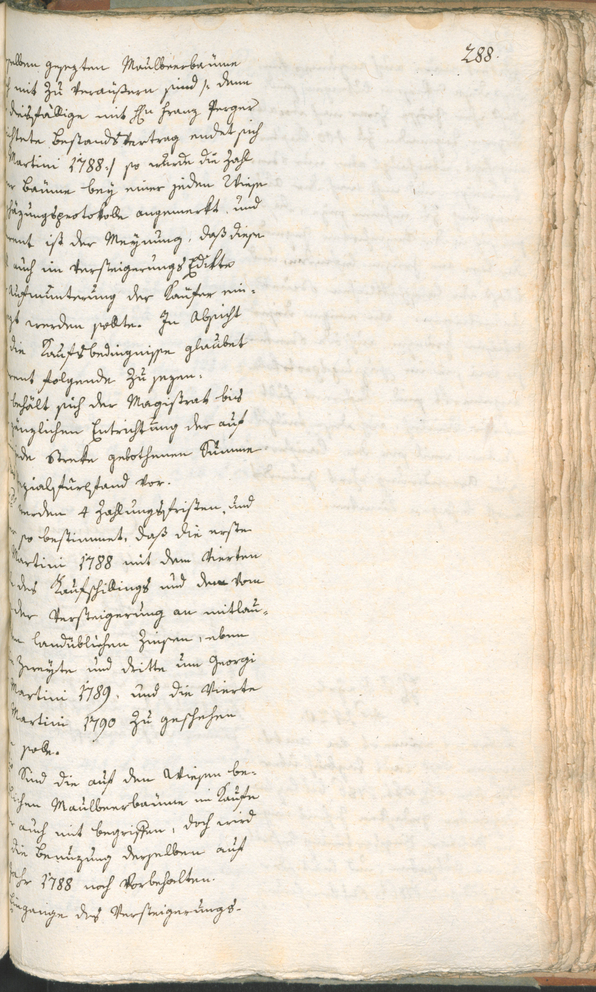 288.
selben gesezten Maulbeerbäume
mit zu veräußern sind /: denn
diesfällige mit H: Franz Perger
chtete Bestandsvertrag endet sich
Martini 1788 :/ so wurde die Zahl
er Bäume bey einer jeden Wiese
häzungsprotokolle angemerkt, und
rent ist der Meynung, daß diese
auch im Versteigerungs Edikte
Aufmunterung der Käufer ein-
gt werden sollte. In Absicht
die Kaufsbedingnisse glaubet
rent folgende zu sezen.
behält sich der Magistrat bis
gänzlichen Entrichtung der auf
ede Streke gebothenen Summe
ezialfürpfand vor.
werden 4 Zahlungsfristen, und
so bestimmet, daß die erste
Martini 1788 mit dem vierten
des Kaufschillings und dem vom
der Versteigerung an mitlau-
n landüblichen Zinsen, eben
zweyte und dritte um Georgi
Martini 1789. und die vierte
Martini 1790 zu geschehen
solle.
Sind die auf den Wiesen be-
lichen Maulbeerbäume im Kaufe
auch mit begriffen, doch wird
die Benuzung derselben auf
ahr 1788 noch vorbehalten.
Eingange des Versteigerungs-